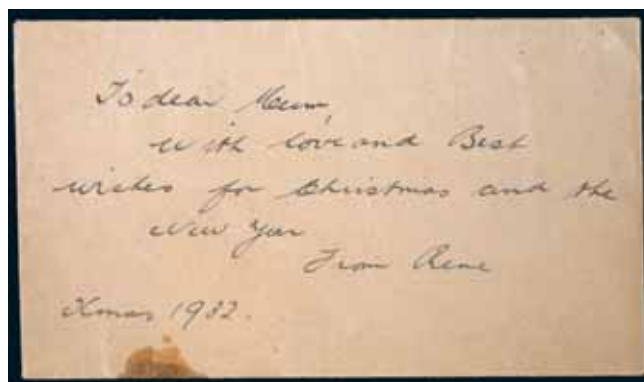 To dear Mum,
with love and Best
wishes for Christmas and the
New Year
From Rene
Xmas 1932.